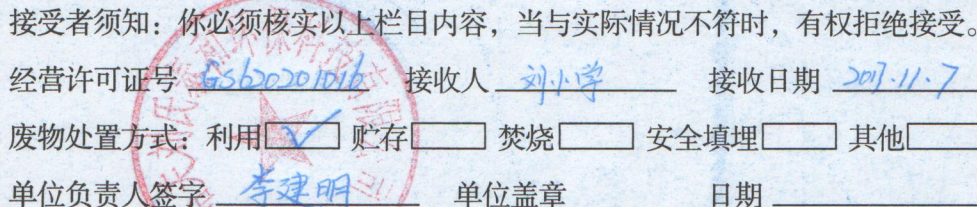 接受者须知：你必须核实以上栏目内容，当与实际情况不符时，有权拒绝接受。
经营许可证号 GS620201016 接收人 刘小学 接收日期 2017.11.7
废物处置方式：利用 ✓ 贮存 焚烧 安全填埋 其他
单位负责人签字 李建明 单位盖章 日期